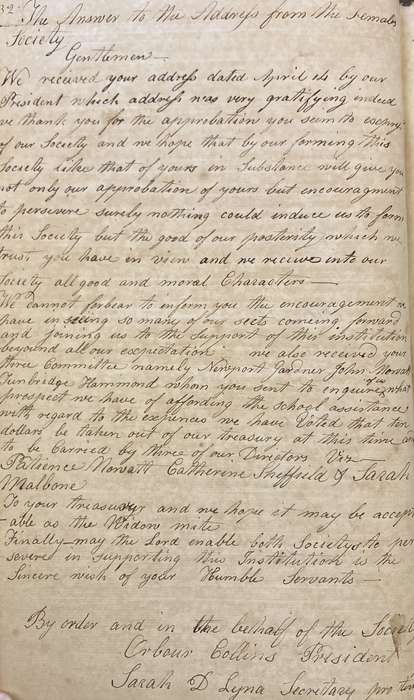 32
The Answer to the Address from the Female
Society
Gentlemen
We received your address dated April 14 by our
President which address was very gratifying indeed
we thank you for the approbation you seem to express
of our Society and we hope that by our forming this
Society like that of yours in Substance will give you
not only our approbation of yours but encouragment
to persevere surely nothing could induce us to form
this Society but the good of our posterity which we
trust you have in view and we receive into our
Society all good and moral Characters
We cannot forbear to inform you the encouragement we
have in seeing so many of our sects comeing forward
and joining us to the Support of this institution
beyound all our expectation we also received your
three Committee namely Newport Gardner John Mowatt
Tunbridge Hammond whom you sent to enquire of us what
prospect we have of affording the School assistance
with regard to the expences we have Voted that ten
dollars be taken out of our treasury at this time and
to be Carried by three of our Directors Viz
Patience Mowatt Catherine Sheffield & Sarah
Malbone
To your treasury and we hope it may be accept
able as the Widow mite
Finally may the Lord enable both Societys to per
severe in Supporting this Institution is the
Sincere wish of your Humble Servants
By order and in the behalf of the Society
Orbour Collins President
Sarah D Lyna Secretary pro